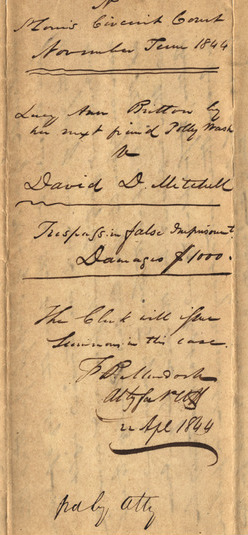 N
St Louis Circuit Court
November Term 1844
Lucy Ann Britton by
her next friend Polly Wash
v
David D. Mitchell
Trespass in false Imprisonment
Damages $1000.
The Clerk will issue
Summons in this case
F B Murdoch
Atty for Ptff
Apl 1844
pd by Atty